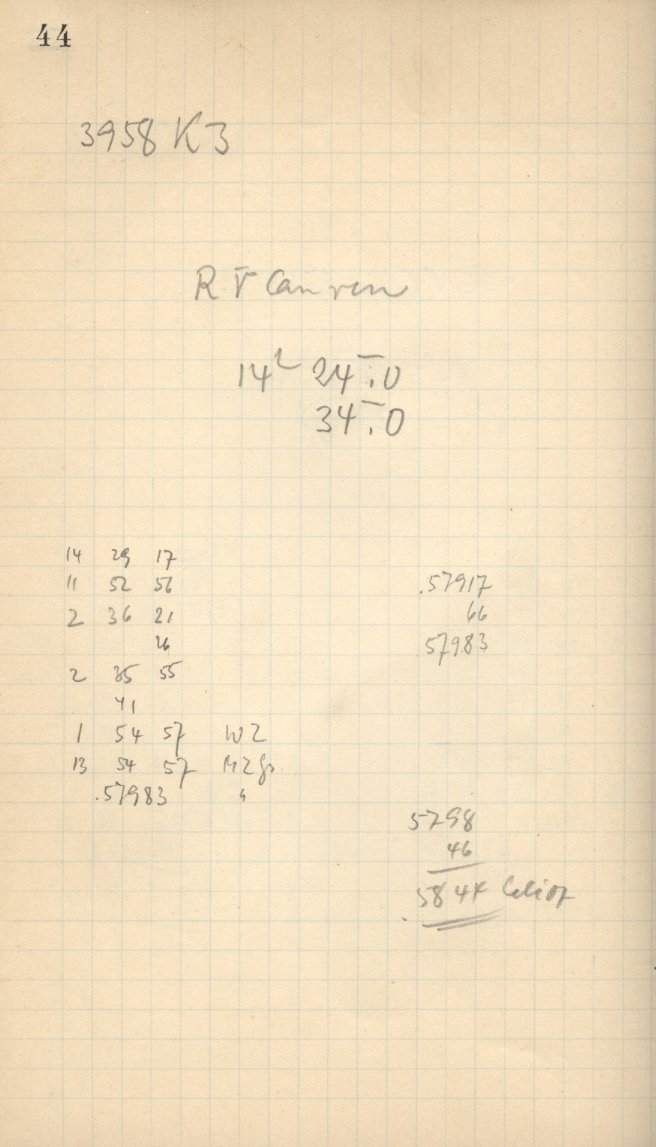 44
3958 K 3
R T Can ven
14ʰ 24ᵐ.0
34ᵐ.0
14 29 17
11 52 56
2 36 21
26
2 35 55
41
1 54 57 W Z
13 54 57 M Z Gr
.57983 "
.57917
66
57983
5798
46
.5844 helioz